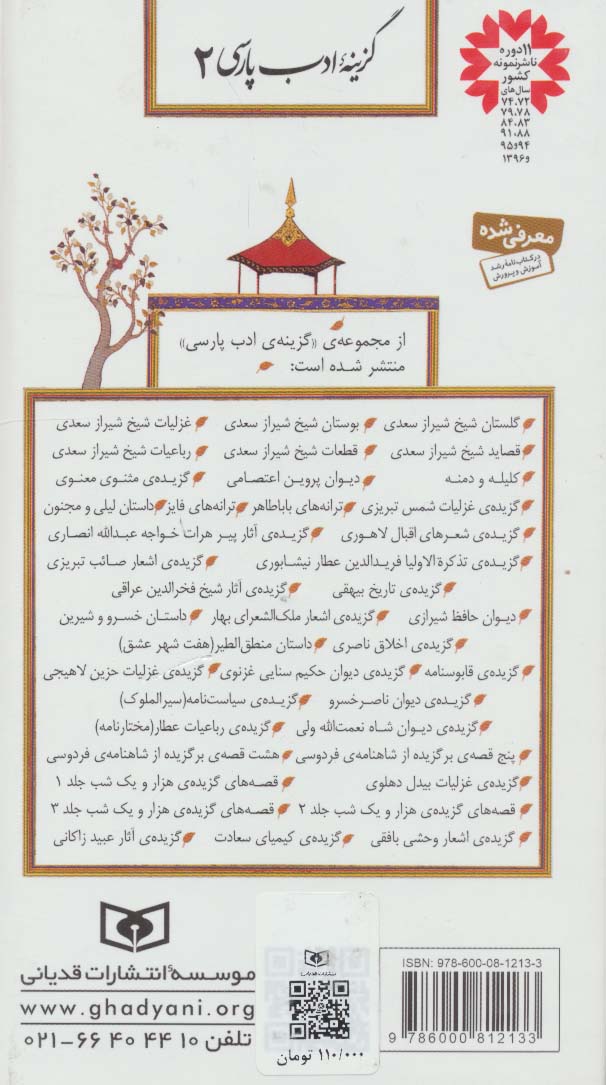 گزینهٔ ادب پارسی ۲
۱۱ دوره
ناشر نمونه
کشور
سال‌های
۷۴،۷۲
۷۹،۷۸
۸۴،۸۳
۹۱،۸۸
۹۴و۹۵
و۱۳۹۶
معرفی شده
در کتاب‌نامهٔ رشد
آموزش و پرورش
از مجموعه‌ی «گزینه‌ی ادب پارسی»
منتشر شده است:
گلستان شیخ شیراز سعدی بوستان شیخ شیراز سعدی غزلیات شیخ شیراز سعدی
قصاید شیخ شیراز سعدی قطعات شیخ شیراز سعدی رباعیات شیخ شیراز سعدی
کلیله و دمنه دیوان پروین اعتصامی گزیده‌ی مثنوی معنوی
گزیده‌ی غزلیات شمس تبریزی ترانه‌های باباطاهر ترانه‌های فایز داستان لیلی و مجنون
گزیده‌ی شعرهای اقبال لاهوری گزیده‌ی آثار پیر هرات خواجه عبدالله انصاری
گزیده‌ی تذکرة الاولیا فریدالدین عطار نیشابوری گزیده‌ی اشعار صائب تبریزی
گزیده‌ی تاریخ بیهقی گزیده‌ی آثار شیخ فخرالدین عراقی
دیوان حافظ شیرازی گزیده‌ی اشعار ملک‌الشعرای بهار داستان خسرو و شیرین
گزیده‌ی اخلاق ناصری داستان منطق‌الطیر(هفت شهر عشق)
گزیده‌ی قابوسنامه گزیده‌ی دیوان حکیم سنایی غزنوی گزیده‌ی غزلیات حزین لاهیجی
گزیده‌ی دیوان ناصرخسرو گزیده‌ی سیاست‌نامه(سیرالملوک)
گزیده‌ی دیوان شاه نعمت‌الله ولی گزیده‌ی رباعیات عطار(مختارنامه)
پنج قصه‌ی برگزیده از شاهنامه‌ی فردوسی هشت قصه‌ی برگزیده از شاهنامه‌ی فردوسی
گزیده‌ی غزلیات بیدل دهلوی قصه‌های گزیده‌ی هزار و یک شب جلد ۱
قصه‌های گزیده‌ی هزار و یک شب جلد ۲ قصه‌های گزیده‌ی هزار و یک شب جلد ۳
گزیده‌ی اشعار وحشی بافقی گزیده‌ی کیمیای سعادت گزیده‌ی آثار عبید زاکانی
موسسهٔ انتشارات قدیانی
www.ghadyani.org
تلفن ۰۲۱-۶۶ ۴۰ ۴۴ ۱۰
۱۱۰/۰۰۰ تومان
ISBN: 978-600-08-1213-3
9 786000 812133